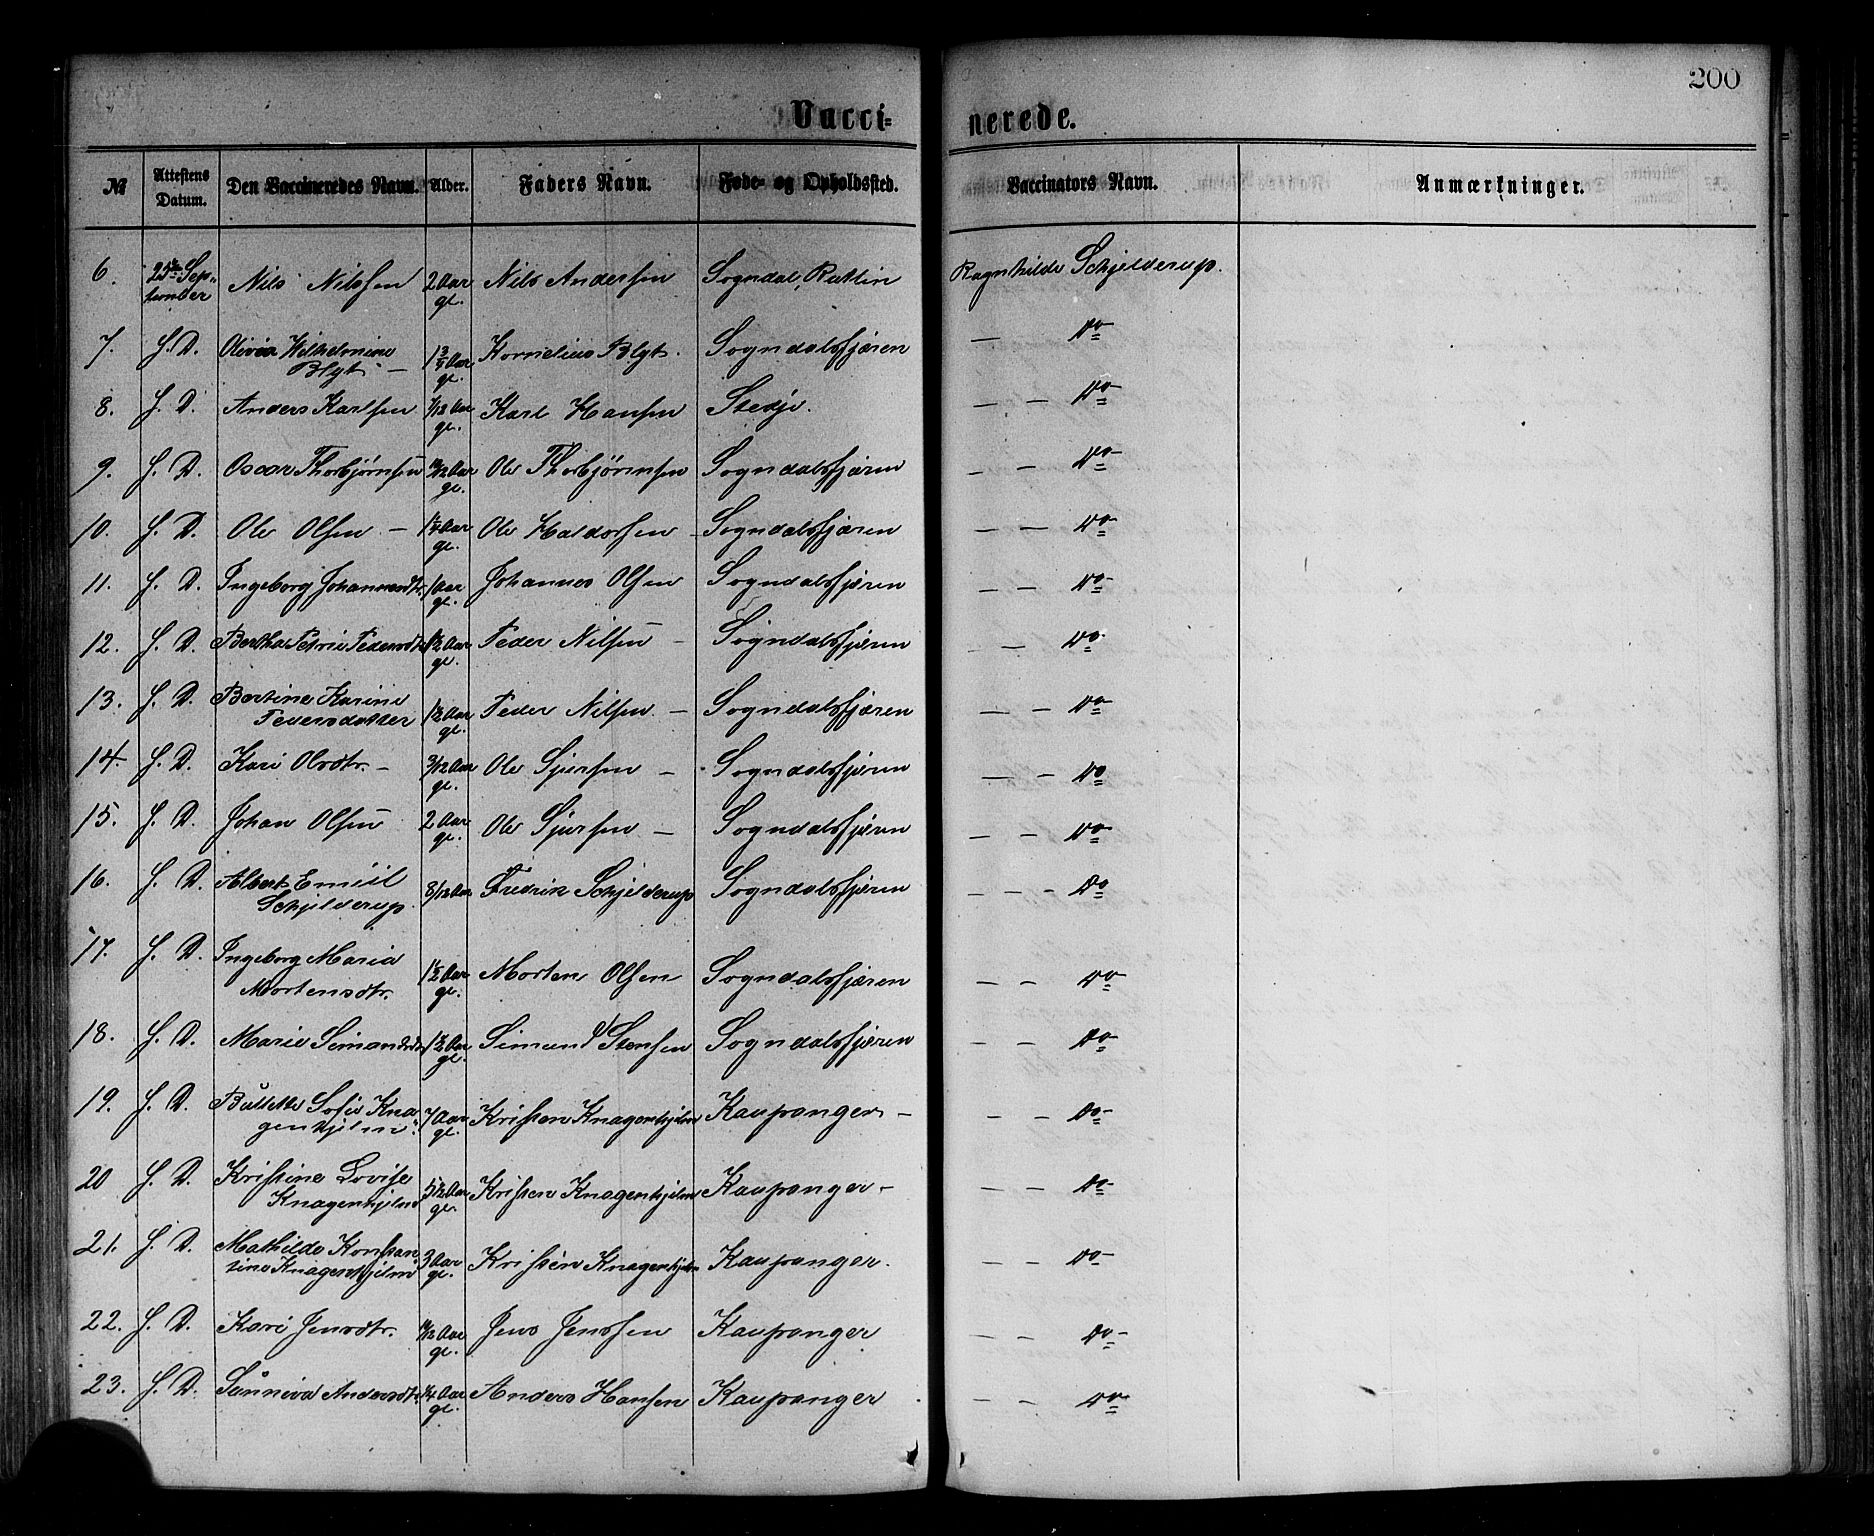 200
Vacci-
nerede.
№ Attestens Datum. Den Vaccineredes Navn. Alder. Faders Navn. Føde- og Opholdssted. Vaccinators Navn. Anmærkninger.
6. 25de Sep-tember Nils Nilssen 2 Aar gl. Nils Anderssen Sogndal, Ragnhilde Schjelderup.
7. S. D. Wilhelmine Blyt — 1 3/4 Aar gl. Kornelius Blyt. Sogndalsfjæren — Do
8. S. D. Anders Karlsen 7/12 Aar gl. Karl Hansen Stedje. — — Do
9. S. D. Oscar Thorbjørnsen Aar gl. Ole Thorbjørnsen Sogndalsfjæren — — Do
10. S. D. Ole Olsen — 1 1/4 Aar gl. Ole Haldorsen — Sogndalsfjæren — — Do
11. S. D. Ingeborg Johannesdtr. 1 Aar gl. Johannes Olsen Sogndalsfjæren — — Do
12. S. D. Bertha Petrine Pedersdtr. 1 1/2 Aar gl. Peder Nilsen — Sogndalsfjæren — — Do
13. S. D. Bertine Karine
Pedersdatter 1 1/2 Aar gl. Peder Nilsen. — Sogndalsfjæren — — Do
14. S. D. Kari Olsdtr. — 3/12 Aar gl. Ole Sjursen — Sogndalsfjæren — — Do
15. S. D. Johan Olsen 2 Aar gl. Ole Sjursen — Sogndalsfjæren — — Do
16. S. D. Albert Emiil
Schjelderup. 8/12 Aar Fredrik Schjelderup Sogndalsfjæren — — — Do
17. S. D. Ingeborg Maria
Mortensdtr. 1 1/2 Aar gl. Morten Olsen Sogndalsfjæren — — Do
18. S. D. Marie Simonsdtr. 1 1/2 Aar gl. Simon Stensen Sogndalsfjæren — — Do
19. S. D. Sofie Kna
genhjelm 7 Aar gl. Kristen Knagenhjelm Kaupanger — — — Do
20 S. D. Kristine Lovise
Knagenhjelm 5 1/2 Aar gl. Kristen Knagenhjelm Kaupanger — — — Do
21. S. D. Mathilde Konstan
tine Knagenhjelm 3 Aar gl. Kristen Knagenhjelm Kaupanger. — — Do
22. S. D. Kari Jensdtr. Aar gl. Jens Jenssen Kaupanger — — Do
23. S. D. Sünneva Andersdtr. 1/4 Aar gl. Anders Hansen Kaupanger — — Do